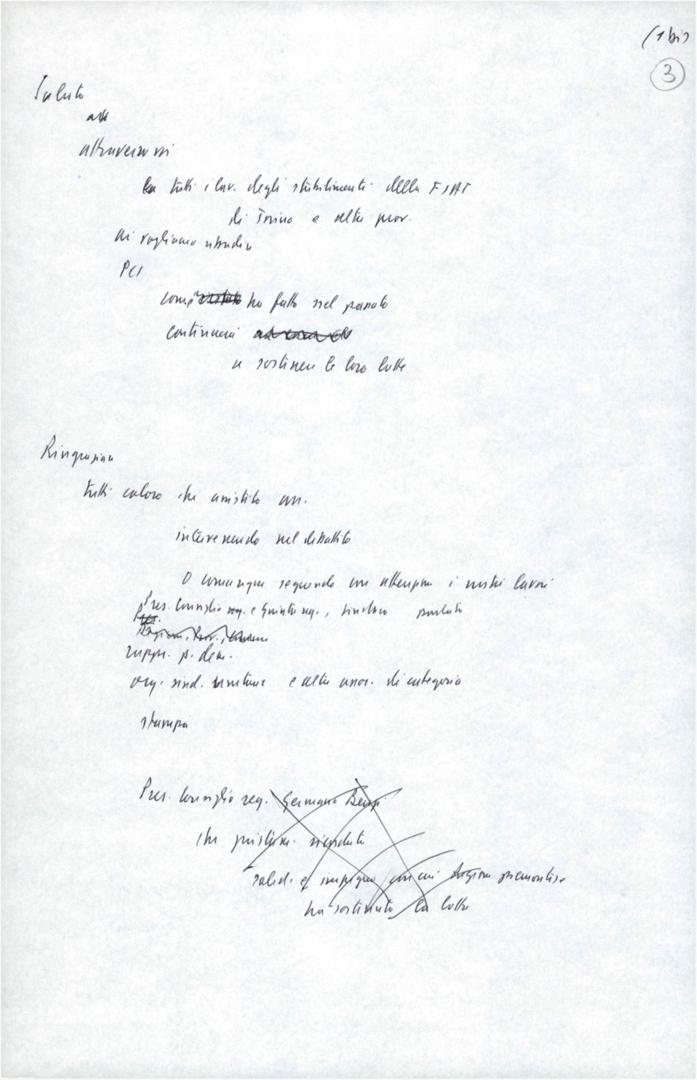 (1 bis
3
Saluto
attraverso voi
tutti i lav. degli stabilimenti della FIAT
di Torino e altre prov.
vi vogliamo
PCI
come ha fatto nel passato
continuerà
a sostenere le loro lotte
Ringraziare
tutti coloro che
intervenendo nel dibattito
O comunque seguendo con attenzione i nostri lavori
Pres. Consiglio reg. e Giunta reg., sindaco
rappr. p. dem.
org. sind. e altre assoc. di categoria
stampa
Pres. Consiglio reg. Germano Benzi
che
solid. e impegno con cui Regione piemontese
ha sostenuto la lotta